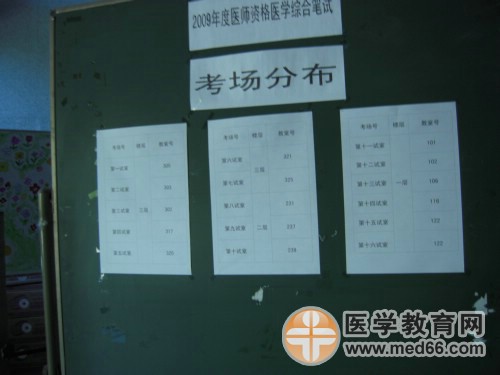 2009年度医师资格医学综合笔试
考场分布
考场号 楼层 教室号
第一试室
第二试室
第三试室 三层
第四试室
第五试室
考场号 楼层 教室号
第六试室 321
三层
第七试室 325
第八试室 231
第九试室 二层 237
第十试室
考场号 楼层 教室号
第十一试室 101
第十二试室 102
第十三试室 一层 108
第十四试室 116
第十五试室
第十六试室
医学教育网
www.med66.com